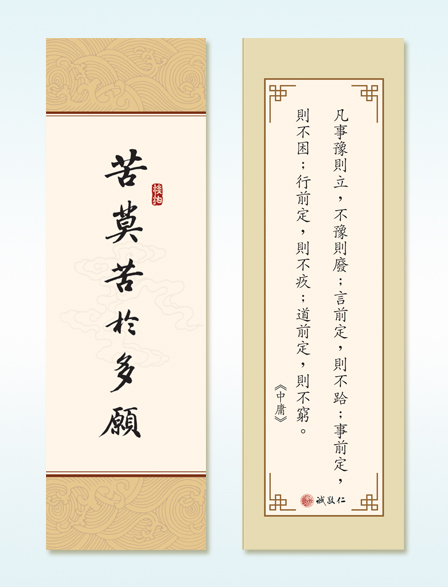 苦莫苦於多願
凡事豫則立，不豫則廢；言前定，則不跲；事前定，
則不困；行前定，則不疚；道前定，則不窮。
《中庸》
誠敬仁